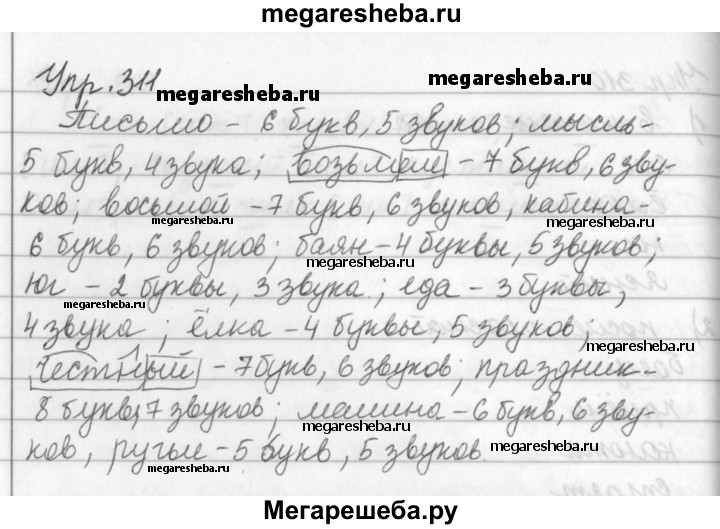 megaresheba.ru
Упр. 311
megaresheba.ru
megaresheba.ru
Письмо – 6 букв, 5 звуков; мысль-
5 букв, 4 звука; возьмём – 7 букв, 6 зву-
ков; восьмой – 7 букв, 6 звуков, кабина-
megaresheba.ru
6 букв, 6 звуков; баян – 4 буквы, 5 звуков;
megaresheba.ru
юг – 2 буквы, 3 звука; еда – 3 буквы,
megaresheba.ru
4 звука; ёлка – 4 буквы, 5 звуков;
megaresheba.ru
честный – 7 букв, 6 звуков; праздник-
8 букв, 7 звуков; машина – 6 букв, 6 зву-
megaresheba.ru
ков, ручьи – 5 букв, 5 звуков.
megaresheba.ru
Мегарешеба.ру